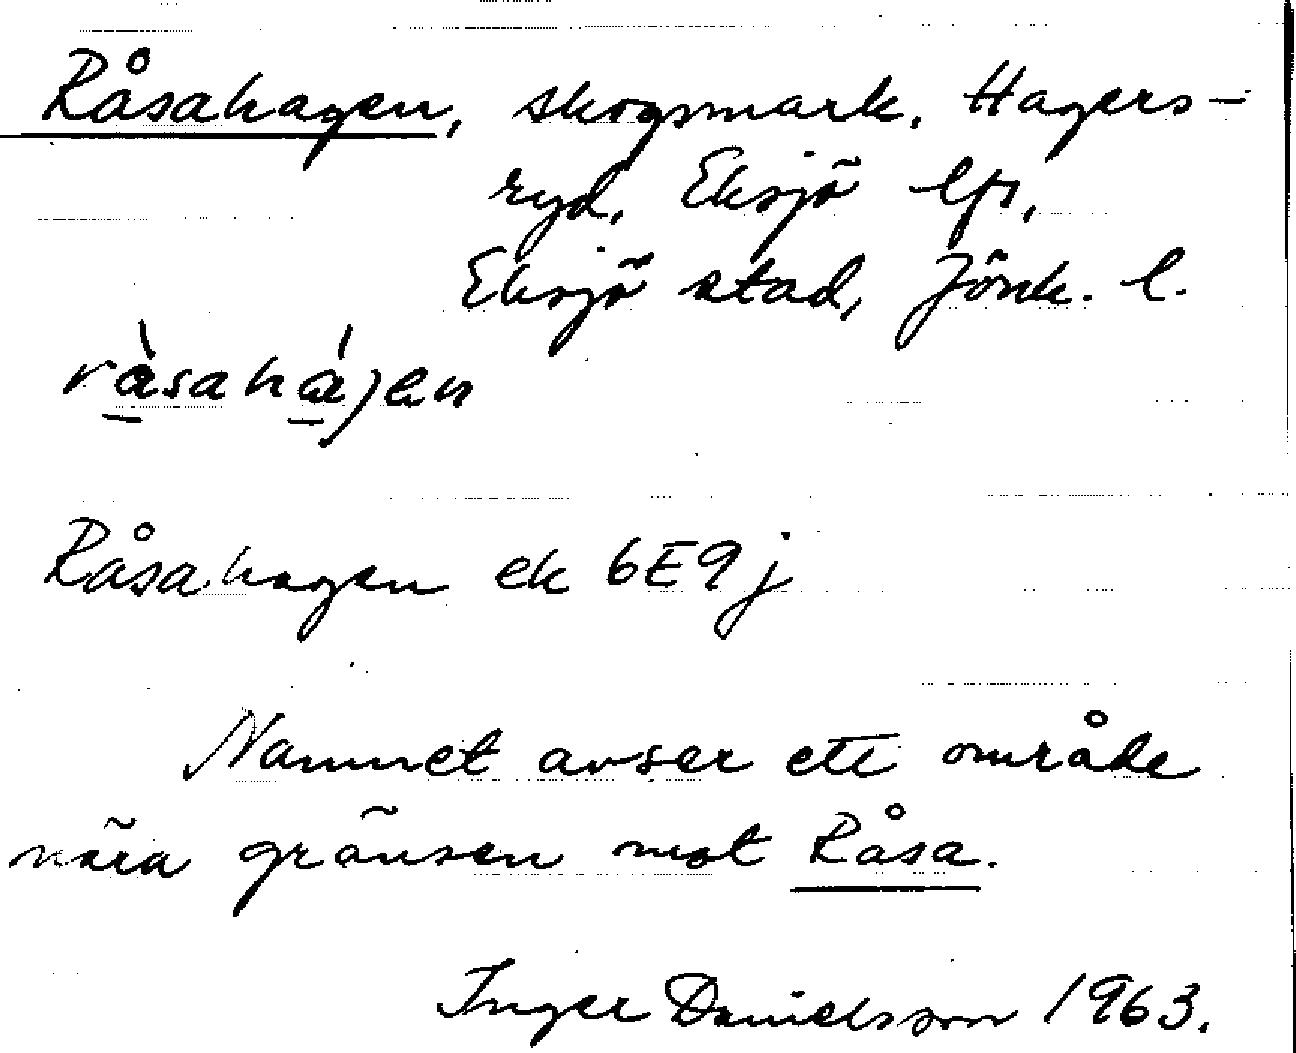 Råsahagen, skogsmark, Hagers-
ryd, Eksjö lfs,
Eksjö stad, Jönk. l.
ràsahájen
Råsahagen ek 6E9j
Namnet avser ett område
nära gränsen mot Råsa.
Inger Danielsson 1963.